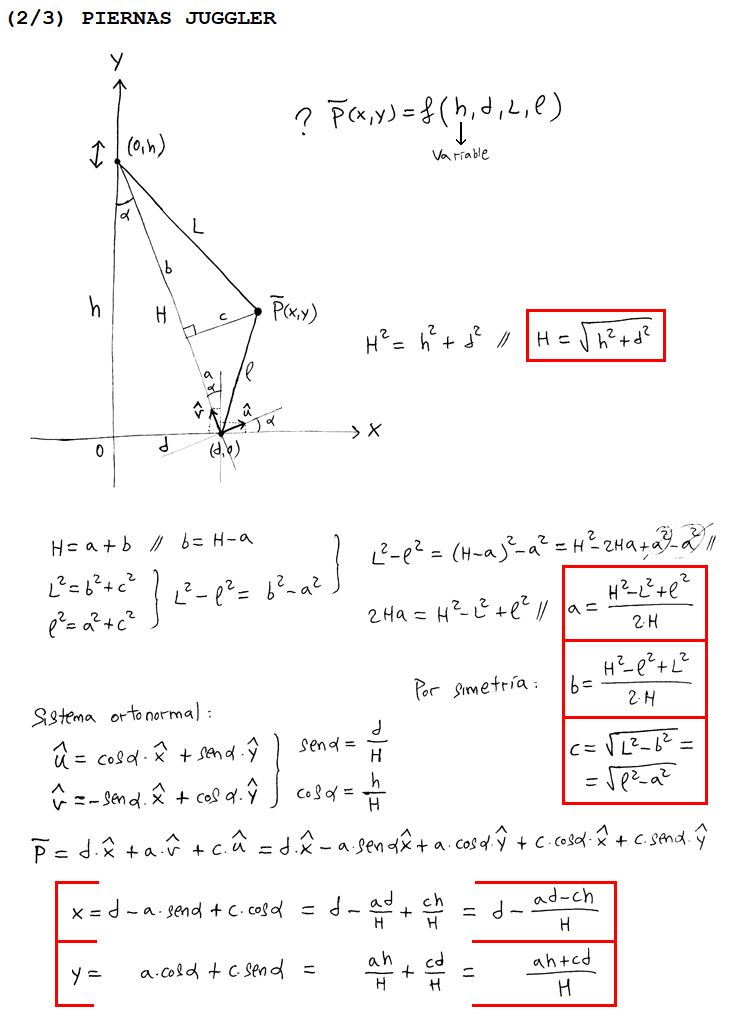 (2/3) PIERNAS JUGGLER
Y
? P̅(x,y) = f(h,d,L,l)
↓
Variable
(0,h)
α
L
b
h
H
c
P̅(x,y)
a
α
l
v̂
û
α
X
0
d
(d,0)
H² = h² + d² // H = √(h²+d²)
H = a + b // b = H-a
L² = b² + c²
l² = a² + c²
L² - l² = b² - a²
L² - l² = (H-a)² - a² = H² - 2Ha + a² - a² //
2Ha = H² - L² + l² // a = (H²-L²+l²)/(2·H)
Por simetría: b = (H²-l²+L²)/(2·H)
c = √(L²-b²) =
= √(l²-a²)
Sistema ortonormal:
û = cosα·x̂ + senα·ŷ
v̂ = -senα·x̂ + cosα·ŷ
senα = d/H
cosα = h/H
P̅ = d·x̂ + a·v̂ + c·û = d·x̂ - a·senαx̂ + a·cosα·ŷ + c·cosα·x̂ + c·senα·ŷ
x = d - a·senα + c·cosα = d - ad/H + ch/H = d - (ad-ch)/H
y = a·cosα + c·senα = ah/H + cd/H = (ah+cd)/H